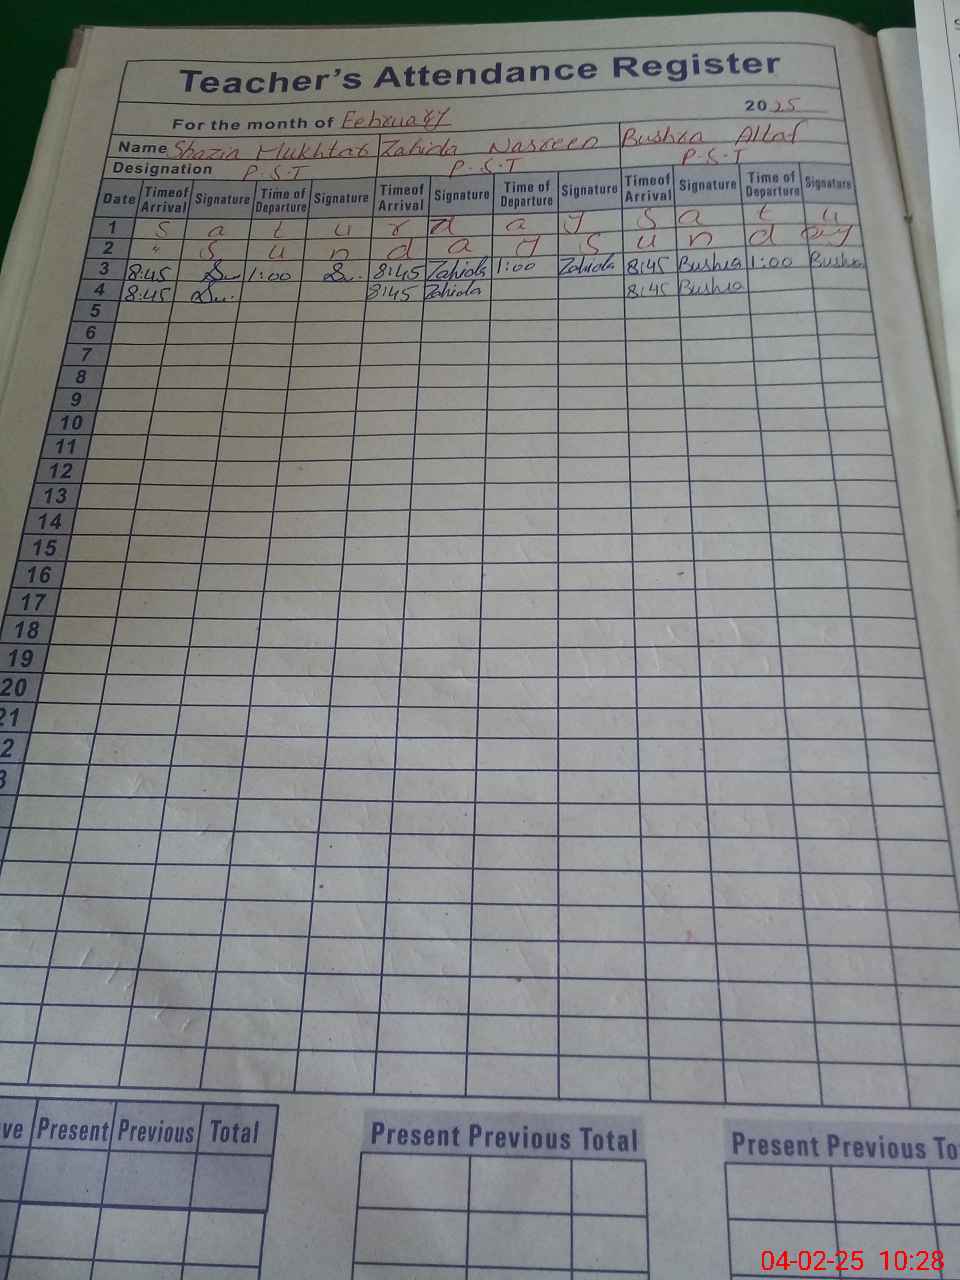 Teacher's Attendance Register
For the month of February 2025
Name Shazia Mukhtar Zahida Nasreen Bushra Altaf
Designation P.S.T P.S.T P.S.T
Date Time of Arrival Signature Time of Departure Signature Time of Arrival Signature Time of Departure Signature Time of Arrival Signature Time of Departure Signature
1 S a t u r d a y S a t u
2 " S u n d a y S u n d ay
3 8:45 1:00 8:45 Zahida 1:00 Zahida 8:45 Bushra 1:00 Bushra
4 8:45 8:45 Zahida 8:45 Bushra
5
6
7
8
9
10
11
12
13
14
15
16
17
18
19
20
21
2
3
ve Present Previous Total Present Previous Total Present Previous To
04-02-25 10:28